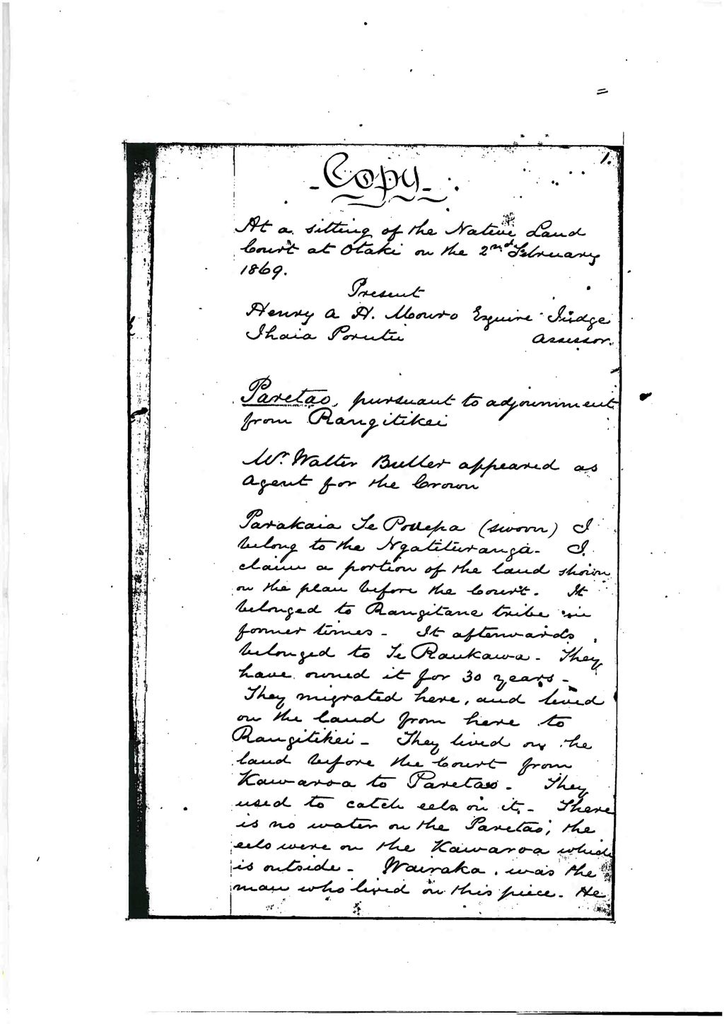 1.
Copy
At a sitting of the Native Land
Court at Otaki on the 2nd February
1869.
Present
Henry A H. Monro Esquire Judge
Ihaia Porutu Assessor.
Paretao, pursuant to adjournment
from Rangitikei
Mr. Walter Buller appeared as
Agent for the Crown
Parakaia Te Pouepa (sworn) I
belong to the Ngatituranga - I
claim a portion of the land shown
on the plan before the Court. It
belonged to Rangitane tribe in
former times - It afterwards
belonged to Te Raukawa - They
have owned it for 30 years -
They migrated here, and lived
on the land from here to
Rangitikei - They lived on the
land before the Court from
Kawaroa to Paretao - They
used to catch eels on it, - There
is no water on the Paretao, the
eels were on the Kawaroa which
is outside - Wairaka, was the
man who lived on this piece. He